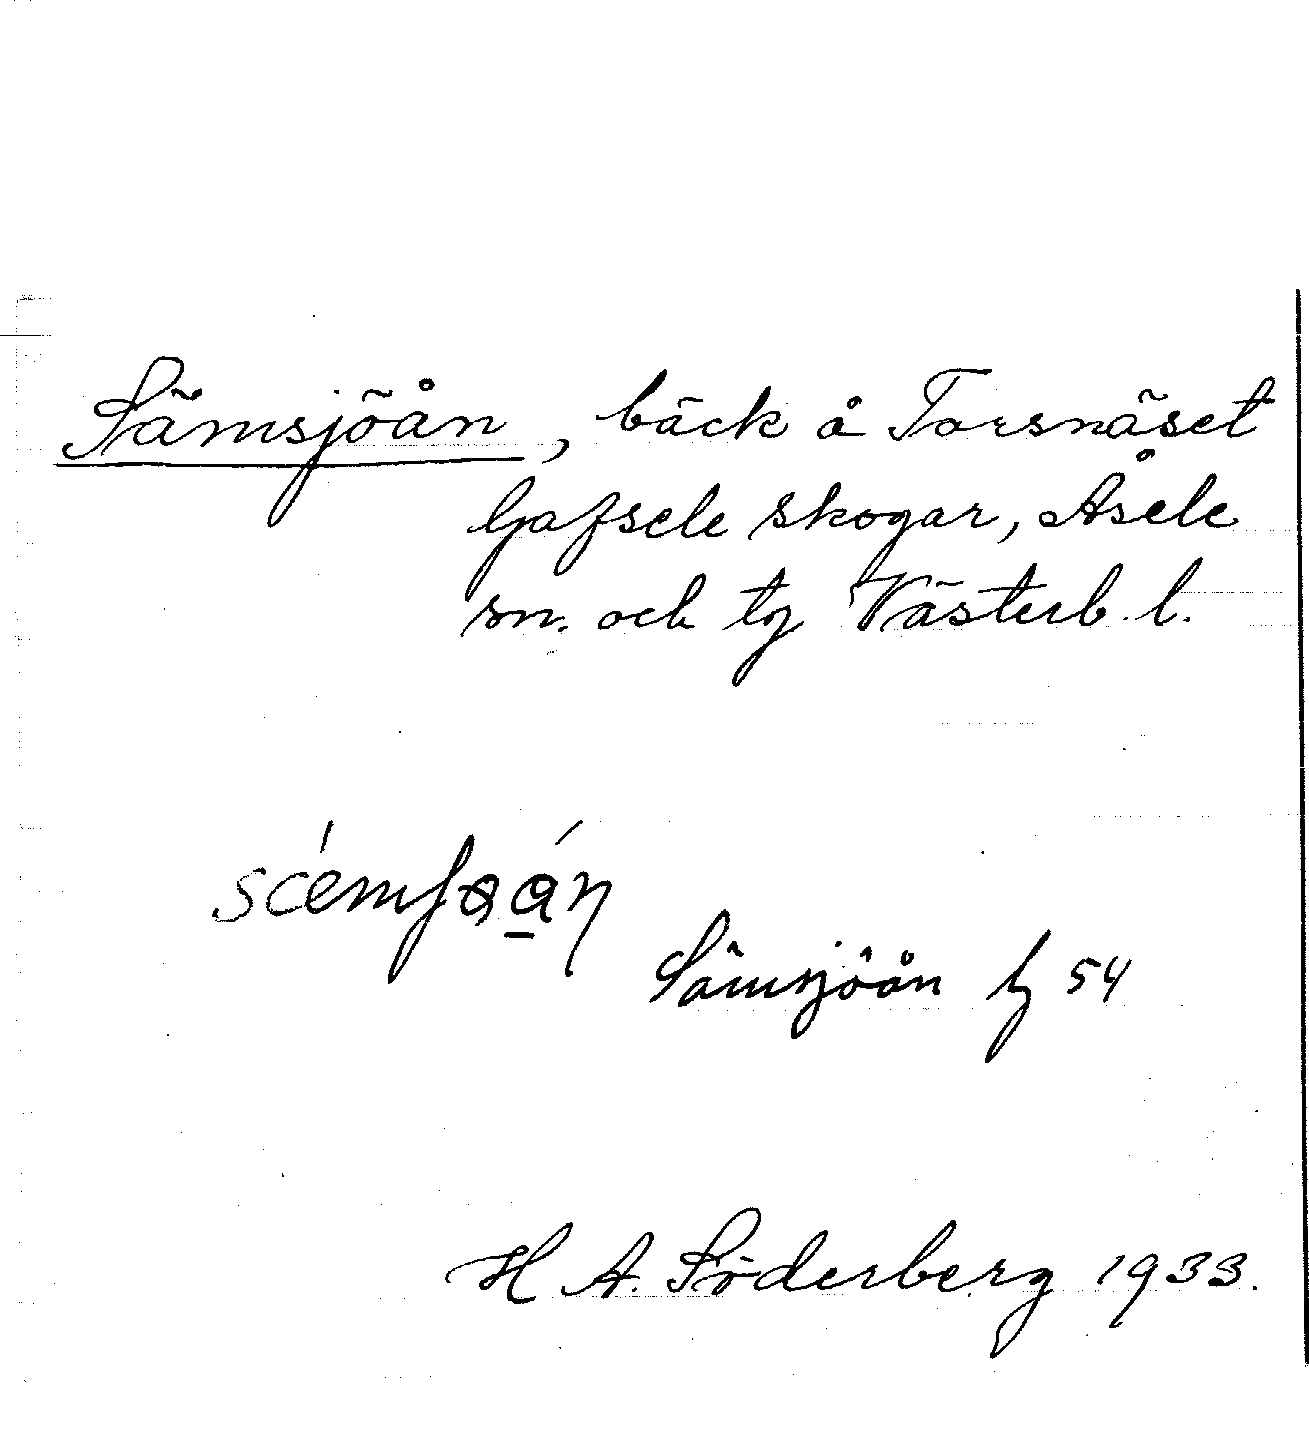 Sämsjöån, bäck å Torsnäset
Gafsele skogar, Åsele
sn. och tg Västerb. l.
Sämsjöån 54
H A. Söderberg 1933.